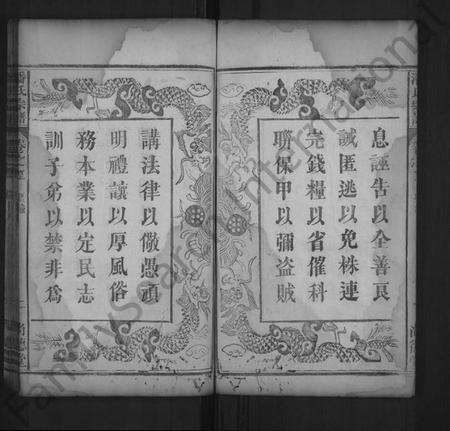 息誣告以全善良
誡匿逃以免株連
完錢糧以省催科
聯保甲以彌盗賊
講法律以儆愚頑
明禮讓以厚風俗
務本業以定民志
訓子弟以禁非為
潘氏宗譜
FamilySearch International